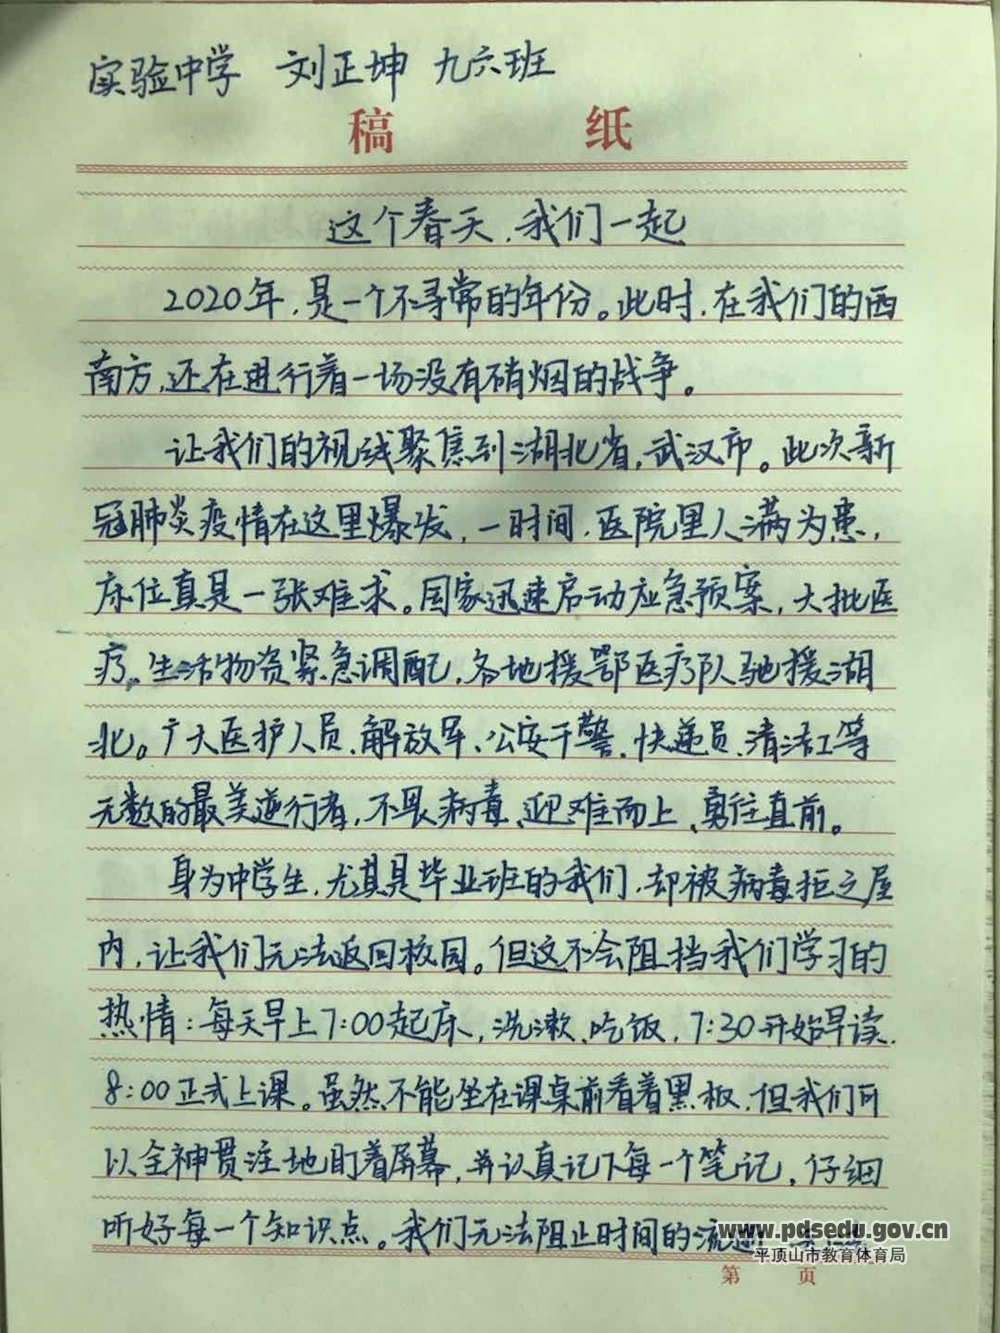 实验中学 刘正坤 九六班
稿 纸
这个春天,我们一起
2020年,是一个不寻常的年份。此时,在我们的西
南方,还在进行着一场没有硝烟的战争。
让我们的视线聚焦到湖北省,武汉市。此次新
冠肺炎疫情在这里爆发,一时间,医院里人满为患,
床位真是一张难求。国家迅速启动应急预案,大批医
疗、生活物资紧急调配,各地援鄂医疗队驰援湖
北。广大医护人员、解放军、公安干警、快递员、清洁工等
无数的最美逆行者,不畏病毒、迎难而上、勇往直前。
身为中学生,尤其是毕业班的我们,却被病毒拒之屋
内,让我们无法返回校园。但这不会阻挡我们学习的
热情:每天早上7:00起床,洗漱、吃饭,7:30开始早读,
8:00正式上课。虽然不能坐在课桌前看着黑板,但我们可
以全神贯注地盯着屏幕,并认真记下每一个笔记,仔细
听好每一个知识点。我们无法阻止时间的流逝
www.pdsedu.gov.cn
平顶山市教育体育局
第 页